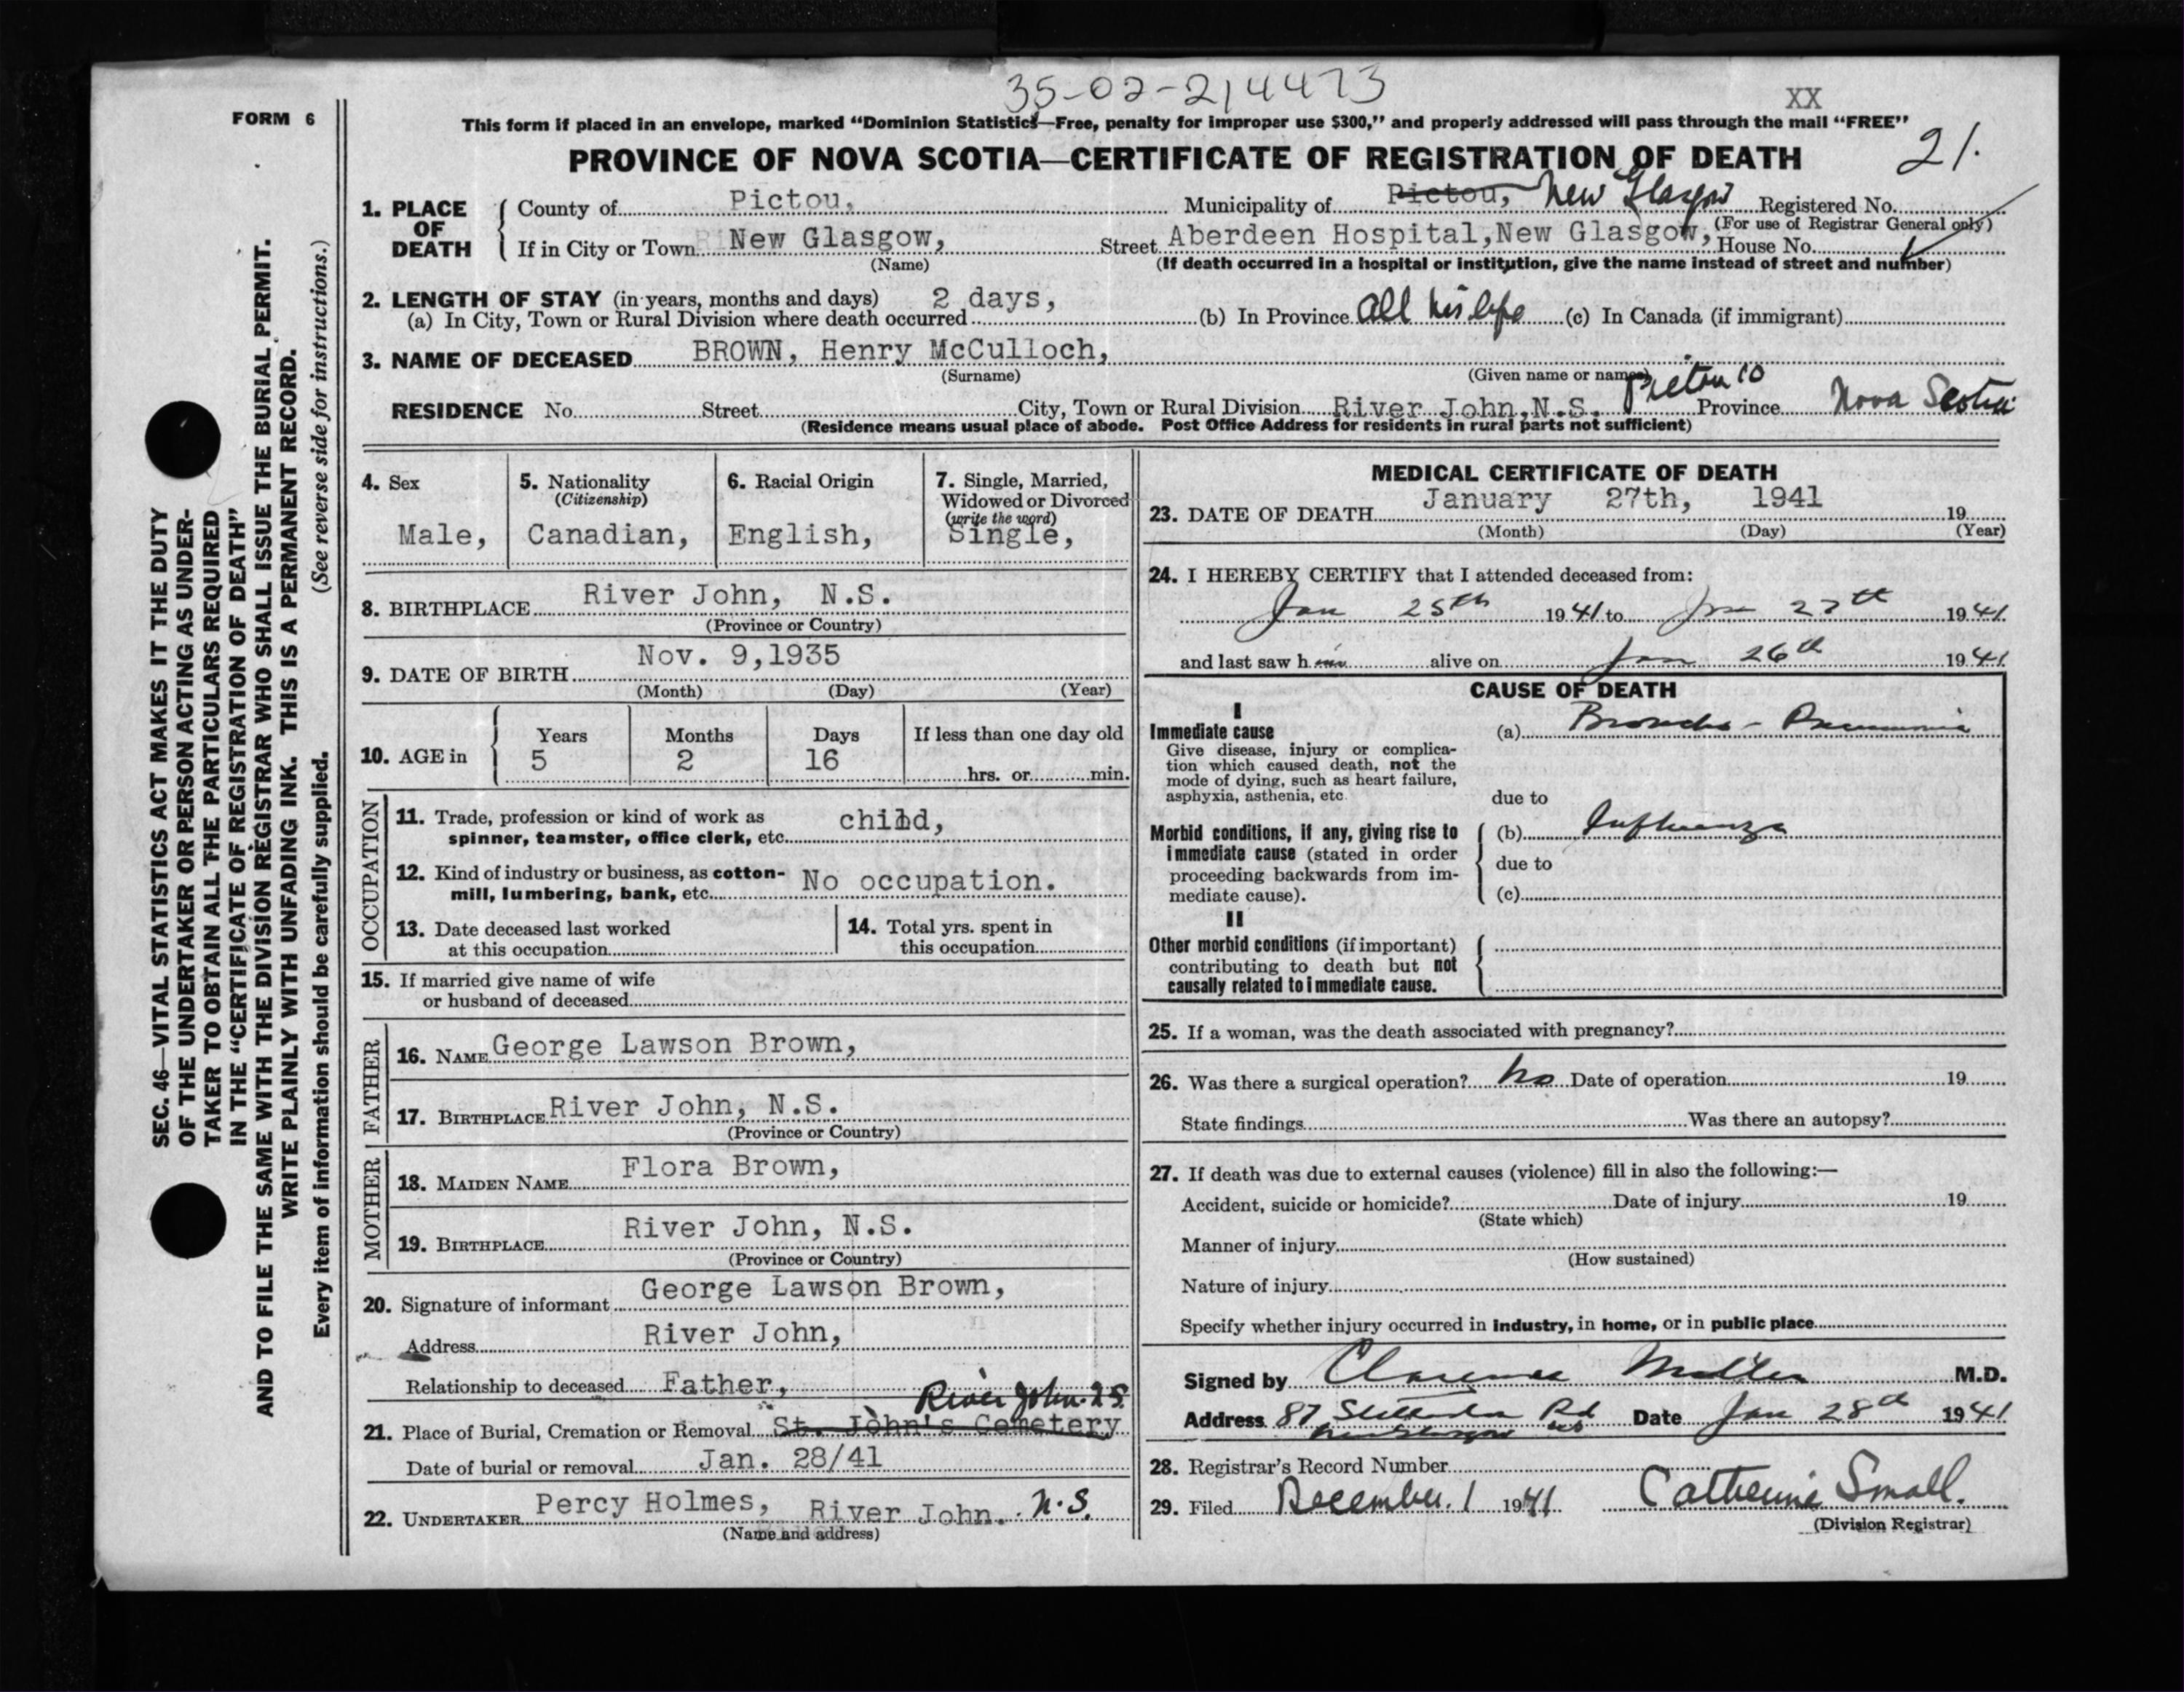 35-02-214473
XX
FORM 6
This form if placed in an envelope, marked "Dominion Statistics—Free, penalty for improper use $300," and properly addressed will pass through the mail "FREE"
21.
PROVINCE OF NOVA SCOTIA—CERTIFICATE OF REGISTRATION OF DEATH
1. PLACE OF DEATH
County of Pictou, Municipality of Pictou, New Glasgow Registered No.
(For use of Registrar General only)
If in City or Town New Glasgow, Street Aberdeen Hospital, New Glasgow, House No.
(Name) (If death occurred in a hospital or institution, give the name instead of street and number)
2. LENGTH OF STAY (in years, months and days) 2 days,
(a) In City, Town or Rural Division where death occurred (b) In Province All his life (c) In Canada (if immigrant)
3. NAME OF DECEASED BROWN, Henry McCulloch,
(Surname) (Given name or names)
Pictou Co
RESIDENCE No. Street City, Town or Rural Division River John, N.S. Province Nova Scotia
(Residence means usual place of abode. Post Office Address for residents in rural parts not sufficient)
4. Sex
Male,
5. Nationality
(Citizenship)
Canadian,
6. Racial Origin
English,
7. Single, Married,
Widowed or Divorced
(write the word)
Single,
8. BIRTHPLACE River John, N.S.
(Province or Country)
9. DATE OF BIRTH Nov. 9,1935
(Month) (Day) (Year)
10. AGE in
Years Months Days If less than one day old
5 2 16 hrs. or min.
OCCUPATION
11. Trade, profession or kind of work as
spinner, teamster, office clerk, etc. child,
12. Kind of industry or business, as cotton-
mill, lumbering, bank, etc. No occupation.
13. Date deceased last worked
at this occupation
14. Total yrs. spent in
this occupation
15. If married give name of wife
or husband of deceased
FATHER
16. NAME George Lawson Brown,
17. BIRTHPLACE River John, N.S.
(Province or Country)
MOTHER
18. MAIDEN NAME Flora Brown,
19. BIRTHPLACE River John, N.S.
(Province or Country)
20. Signature of informant George Lawson Brown,
Address River John,
Relationship to deceased Father,
River John. N.S.
21. Place of Burial, Cremation or Removal St. John's Cemetery
Date of burial or removal Jan. 28/41
22. UNDERTAKER Percy Holmes, River John. N.S.
(Name and address)
MEDICAL CERTIFICATE OF DEATH
23. DATE OF DEATH January 27th, 1941 19
(Month) (Day) (Year)
24. I HEREBY CERTIFY that I attended deceased from:
Jan 25th 1941 to Jan 27th 1941
and last saw him alive on Jan 26th 1941
CAUSE OF DEATH
I
Immediate cause
Give disease, injury or complica-
tion which caused death, not the
mode of dying, such as heart failure,
asphyxia, asthenia, etc.
(a) Broncho - Pneumonia
due to
Morbid conditions, if any, giving rise to
immediate cause (stated in order
proceeding backwards from im-
mediate cause).
(b) Influenza
due to
(c)
II
Other morbid conditions (if important)
contributing to death but not
causally related to immediate cause.
25. If a woman, was the death associated with pregnancy?
26. Was there a surgical operation? No Date of operation 19
State findings Was there an autopsy?
27. If death was due to external causes (violence) fill in also the following:—
Accident, suicide or homicide? Date of injury 19
(State which)
Manner of injury
(How sustained)
Nature of injury
Specify whether injury occurred in industry, in home, or in public place
Signed by Clarence Miller M.D.
Address 87 Rd Date Jan 28th 1941
New Glasgow NS
28. Registrar's Record Number
29. Filed December 1 1941 Catherine Small.
(Division Registrar)
SEC. 46—VITAL STATISTICS ACT MAKES IT THE DUTY
OF THE UNDERTAKER OR PERSON ACTING AS UNDER-
TAKER TO OBTAIN ALL THE PARTICULARS REQUIRED
IN THE "CERTIFICATE OF REGISTRATION OF DEATH"
AND TO FILE THE SAME WITH THE DIVISION REGISTRAR WHO SHALL ISSUE THE BURIAL PERMIT.
WRITE PLAINLY WITH UNFADING INK. THIS IS A PERMANENT RECORD.
Every item of information should be carefully supplied. (See reverse side for instructions.)